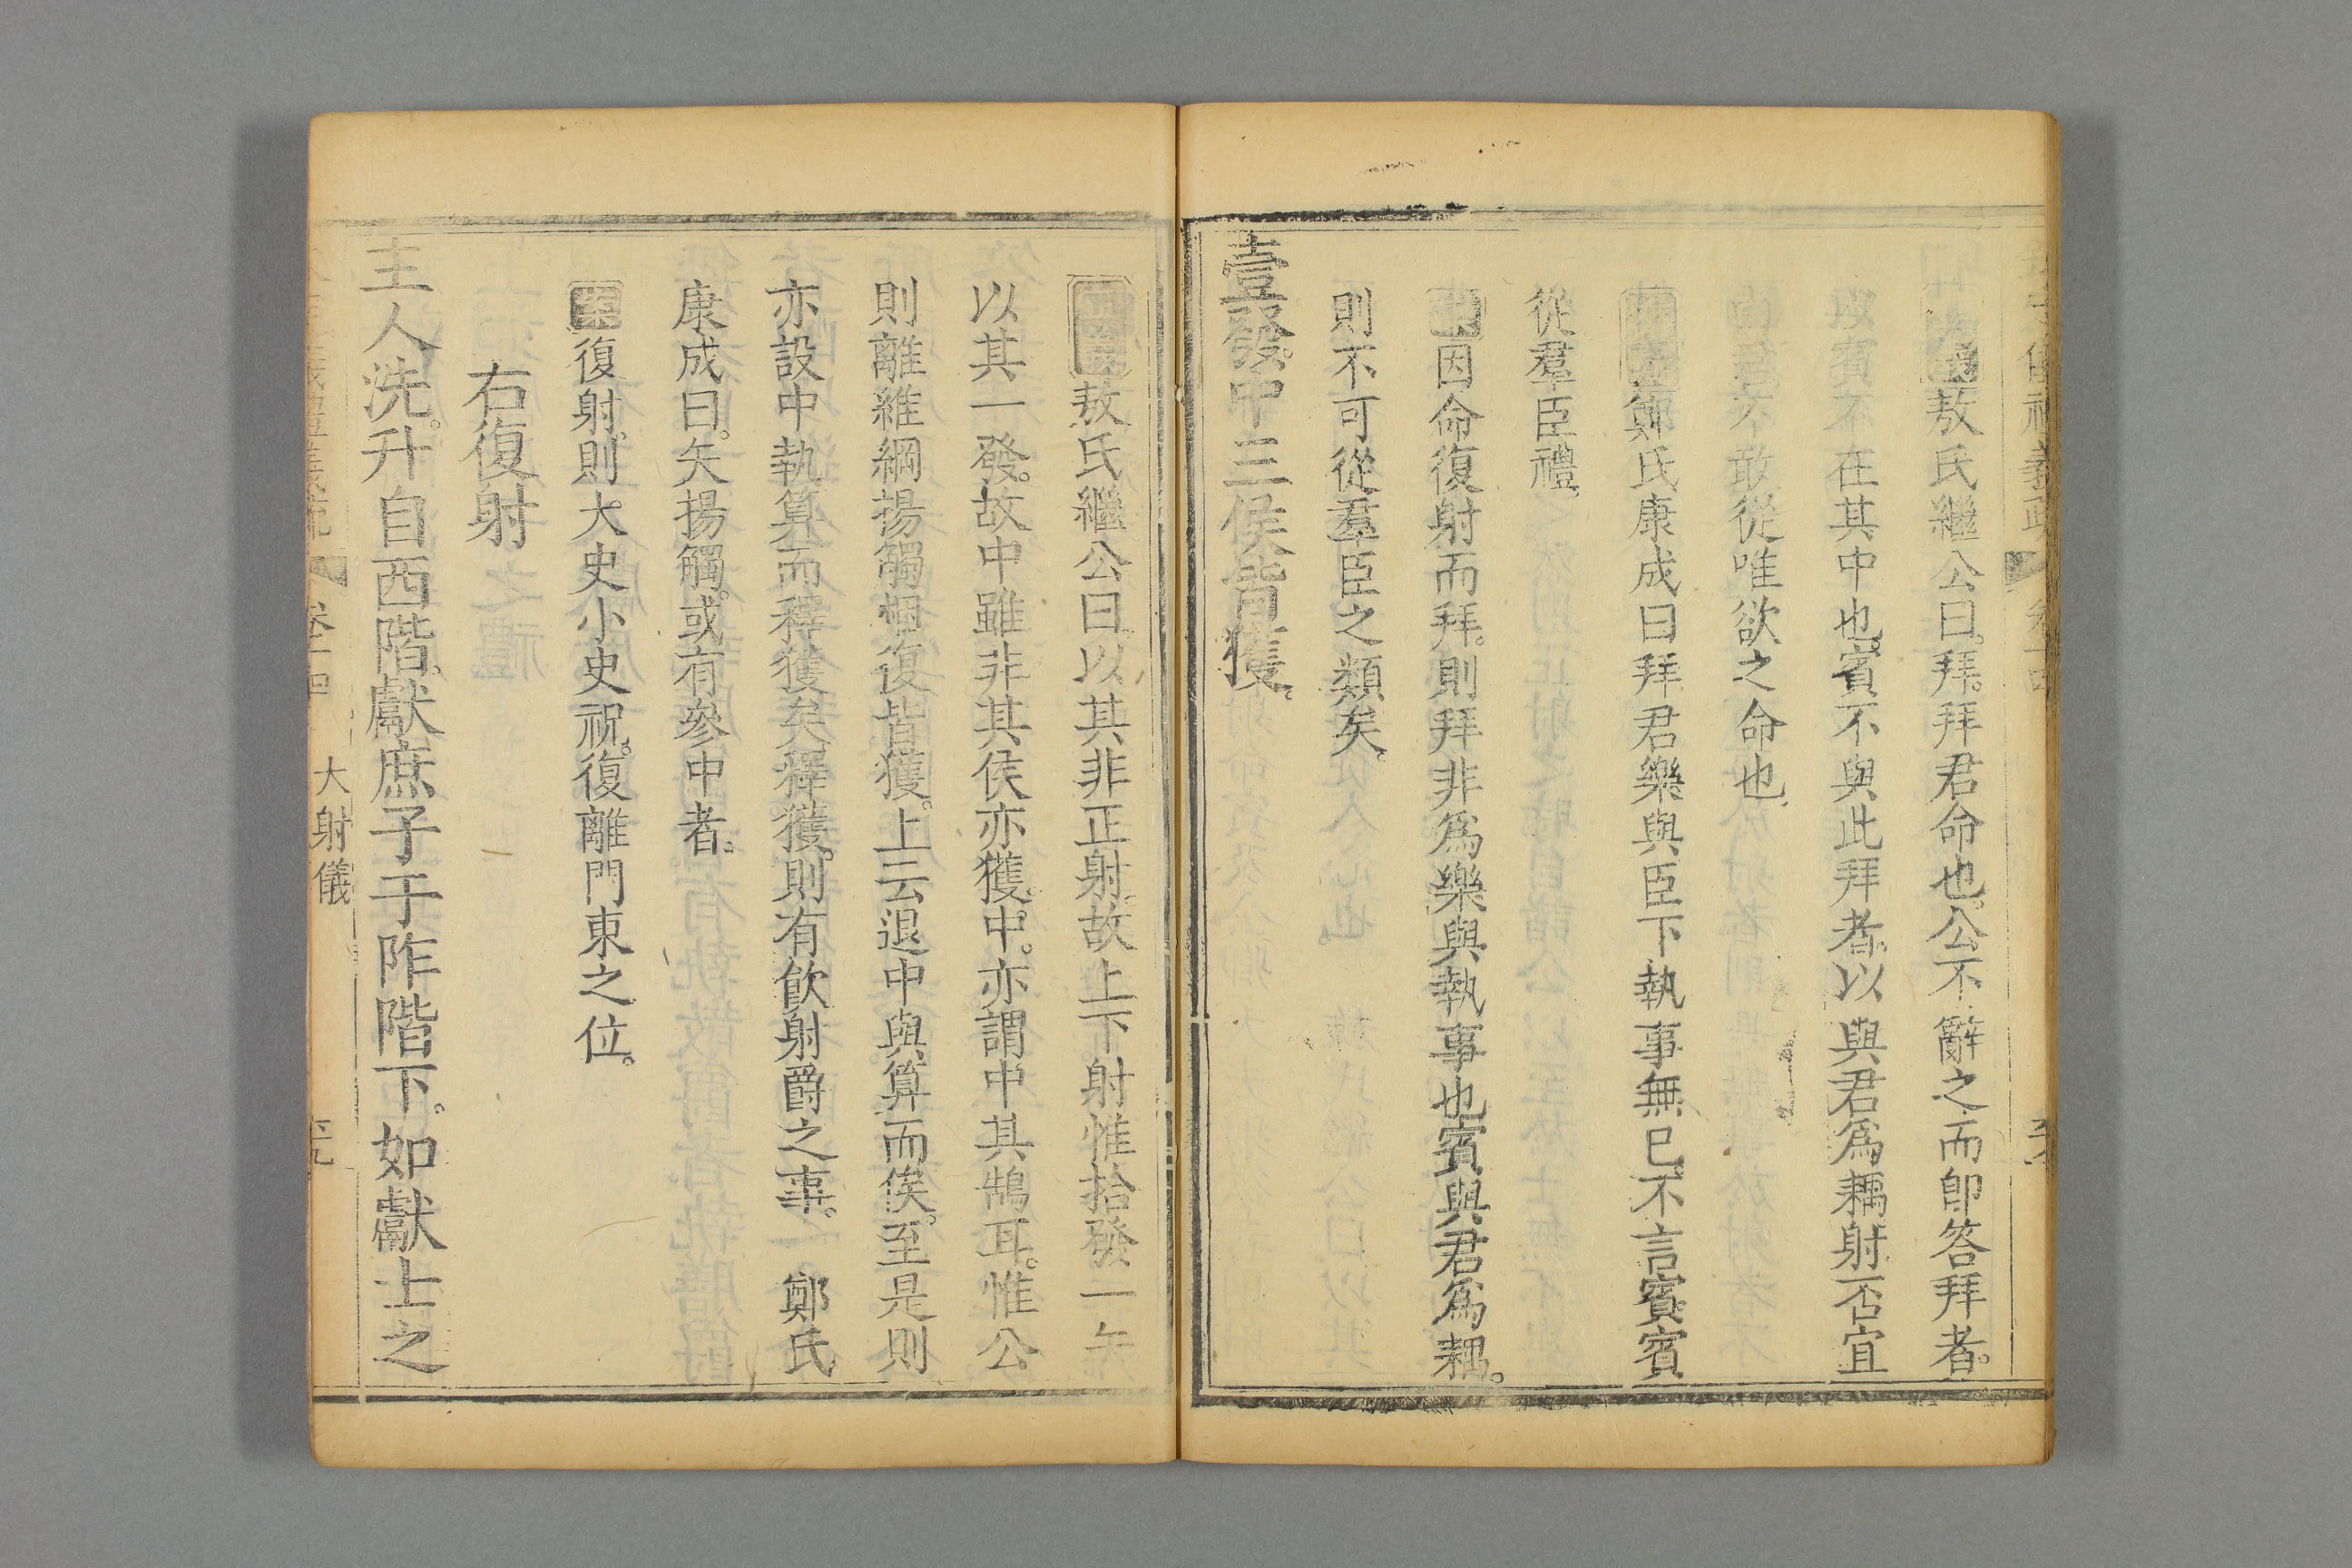 敖氏繼公曰。拜。拜君命也。公不辭之而卽答拜者。
賓不在其中也。賓不與此拜者。以與君爲耦射否宜
不敢從唯欲之命也。
鄭氏康成曰拜君樂與臣下執事無已。不言賓。賓
從羣臣禮。
因命復射而拜。則拜非爲樂與執事也。賓與君爲耦。
則不可從羣臣之類矣。
壹發。中三侯皆獲。
敖氏繼公曰。以其非正射。故上下射惟拾發一矢
以其一發。故中雖非其侯亦獲。中。亦謂中其鵠耳。惟公
則離維綱揚觸梱復皆獲。上云退中與算而俟。至是則
亦設中執算而釋獲矣。釋獲。則有飮射爵之事。 鄭氏
康成曰。矢揚觸。或有參中者。
案復射。則大史小史祝。復離門東之位。
右復射
主人洗。升自西階。獻庶子于阼階下。如獻士之
卷十四 大射儀